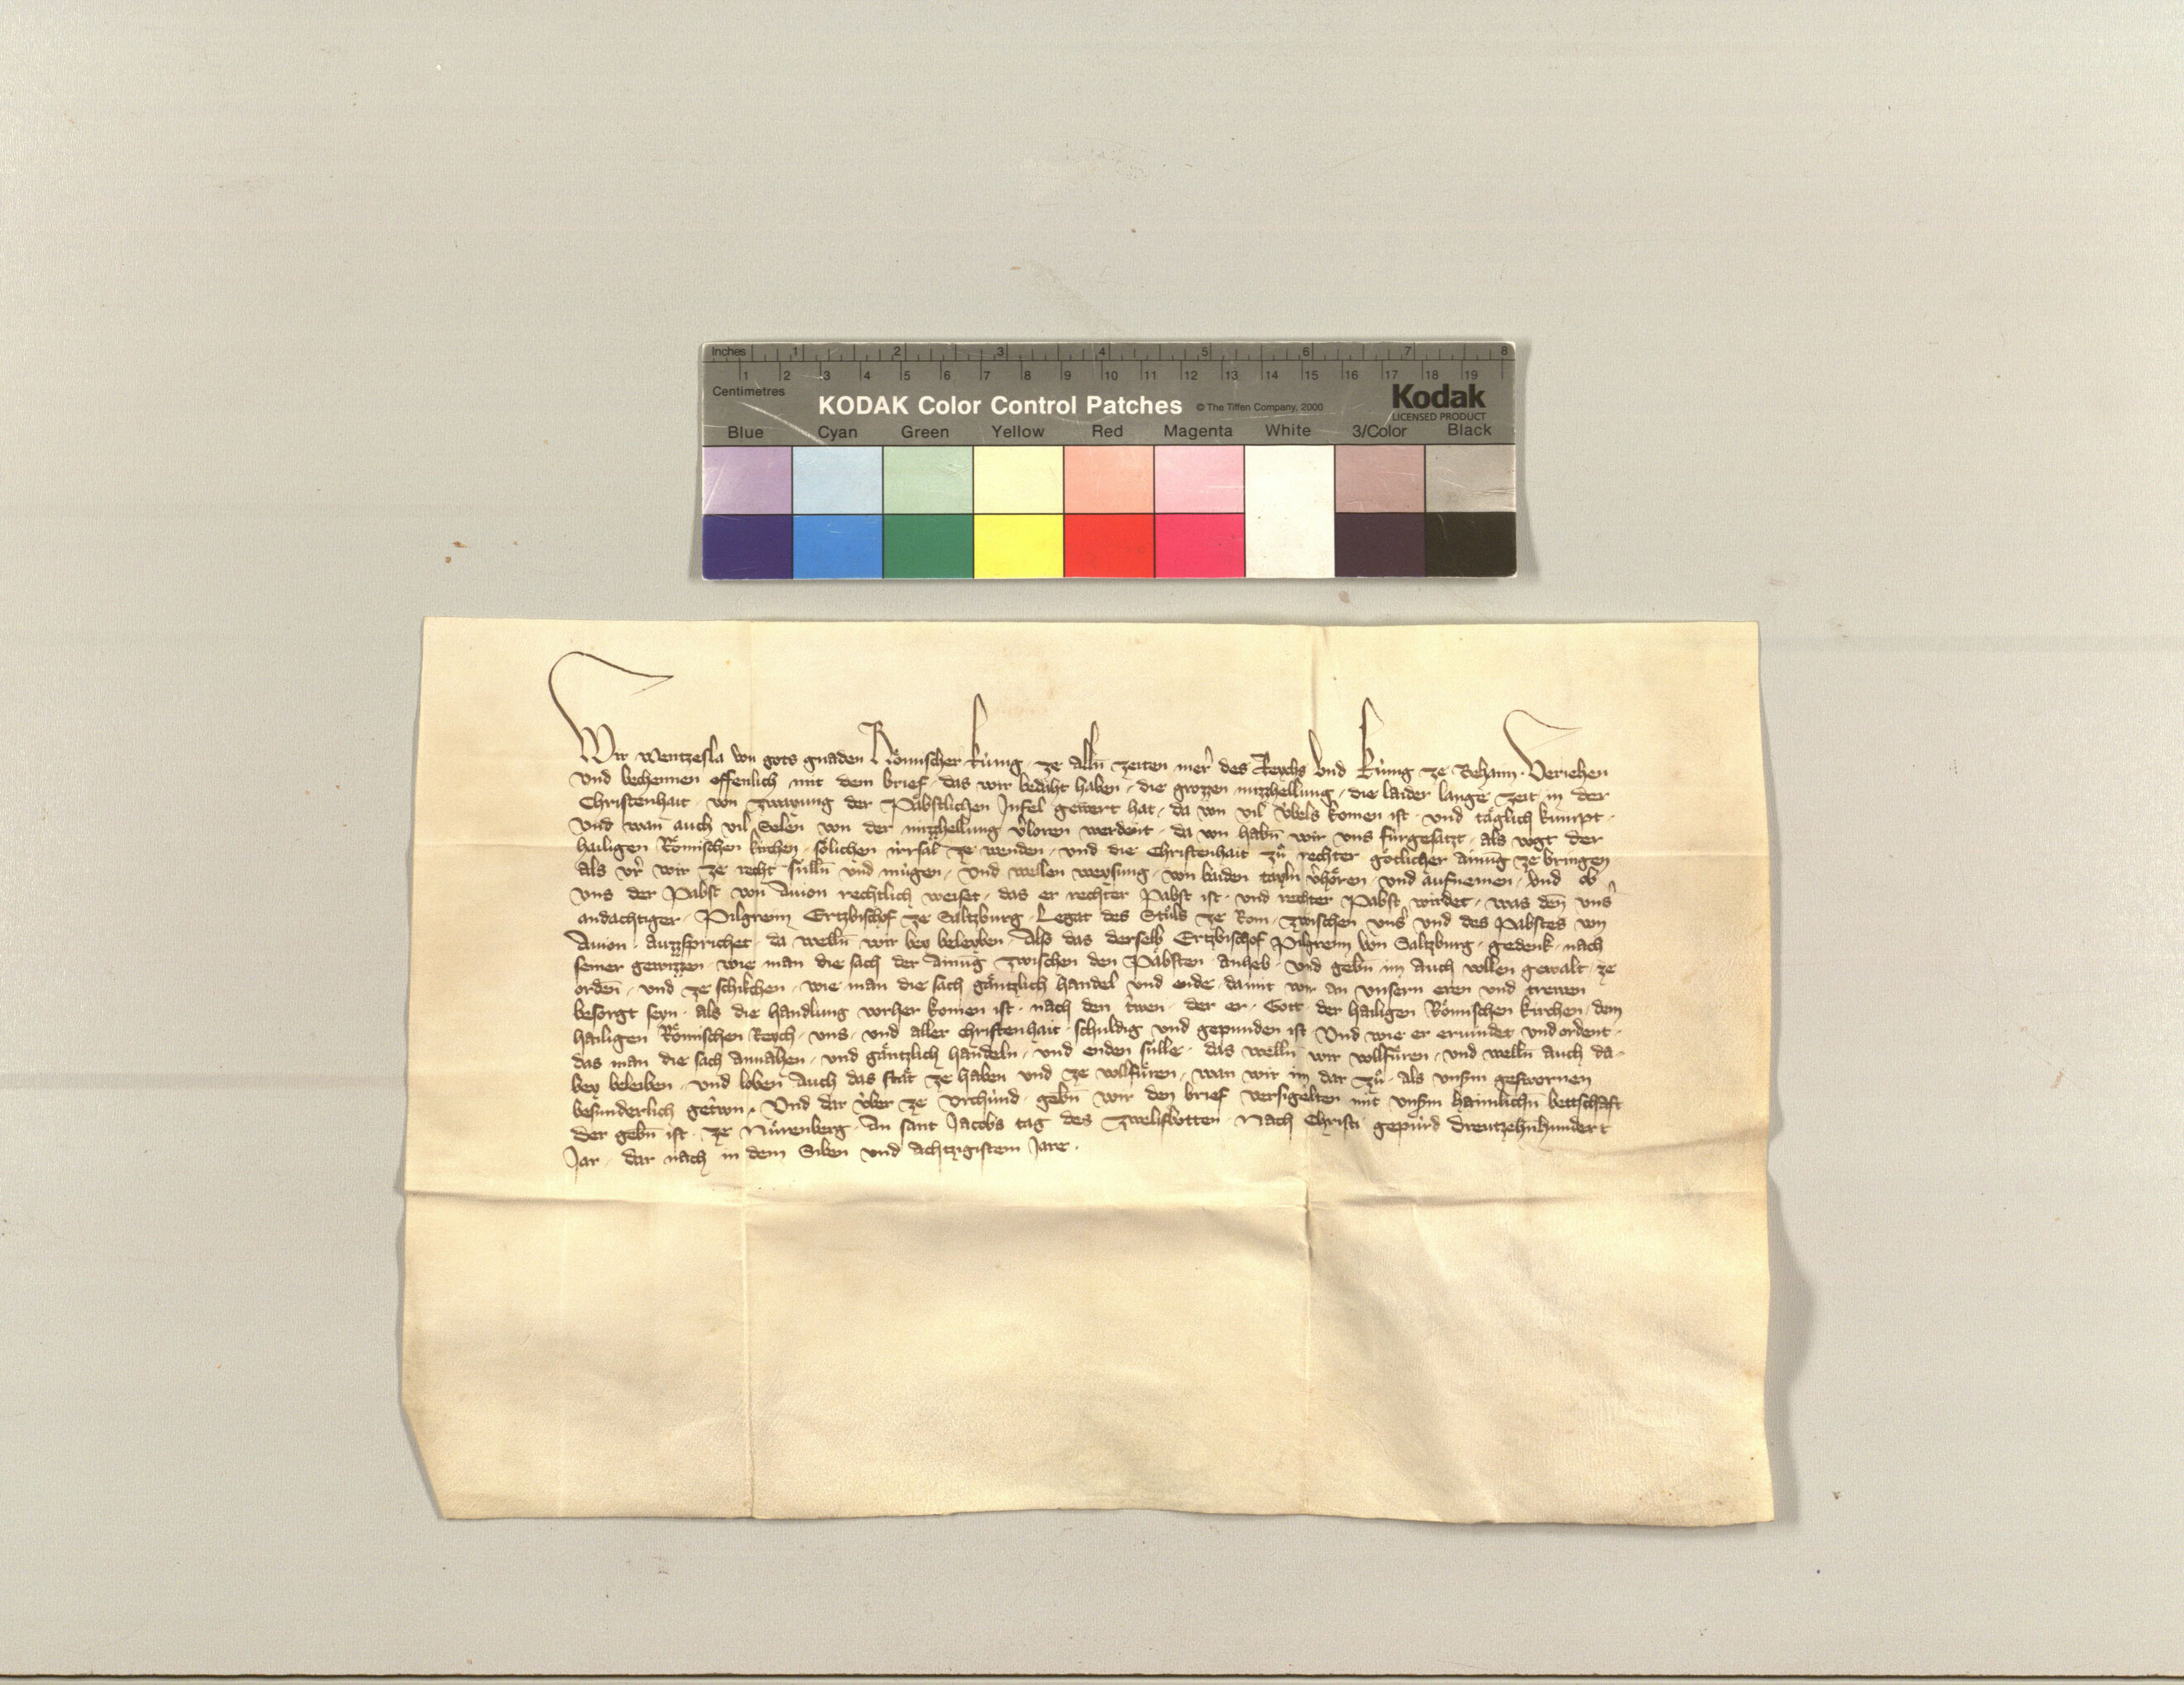 Inches 1 2 3 4 5 6 7 8
1 2 3 4 5 6 7 8 9 10 11 12 13 14 15 16 17 18 19
Centimetres
KODAK Color Control Patches © The Tiffen Company, 2000 Kodak
LICENSED PRODUCT
Blue Cyan Green Yellow Red Magenta White 3/Color Black
Wir Wentzesla von gots gnaden Römischer küng · ze alln̄ zeiten mer' des Reychs vnd küng ze Behaim · Veriehen
vnd bechennen offenlich mit dem brief · das wir bedáht haben · die grozzen mizzhellung · die laider lange zeit in der
Christenhait · von zwayung der Päbstlichen Infel gewert hat · da von vil v̈bels komen ist · vnd täglich kumpt ·
vnd wan̄ auch vil Selen von der mizzhellung v'loren werdent · da von habn̄ wir vns fürgesatzt · als vogt der
hailigen Römischen kirchen · sölichen irrsal ze wenden · vnd die Christenhait zů rechter götlicher ainūg ze bringen
als v'r wir ze recht sülln̄ vnd mügen · vnd wellen weysung · von baiden tayln v'hören · vnd aufnemen · vnd ob
vns der Pabst von Auion rechtlich weiset · das er rechter Pabst ist · vnd rechter Pabst wirdet · was den̄ vns'
andachtiger · Pilgreim Ertzbischof ze Saltzburg · Legat des Stůls ze Rom · zwischen vns' vnd des Pabstes von
Auion · auzzsprichet · da welln̄ wir bey beleyben · Also das derselb Ertzbischof Pilgreim von Saltzburg · gedenk · nach
seiner gewizzen · wie man die sach der ainūg zwischen den Päbsten anheb · vnd gebn̄ im auch vollen gewalt · ze
orden̄ · vnd ze schikchen · wie man die sach gäntzlich handel vnd ende · damit wir an vnsern eren vnd trewen
besorgt seyn · als die handlung vorher komen ist · nach den t'wen · der er · Gott · der hailigen Römischen kirchen · dem
hailigen Römischen Reych · vns · vnd aller christenhait · schuldig vnd gepunden ist · Vnd wie er eruindet vnd ordent ·
das man die sach annahen · vnd gäntzlich handeln · vnd enden sülle · das welln̄ wir vollfüren · vnd welln̄ auch da-
bey beleiben · vnd loben auch das stät ze haben vnd ze vollfüren · wan wir im dar zů · als vnsm geswornen
besunderlich get'wn · Vnd dar v̈ber ze vrchünd · gebn̄ wir den brief versigelten mit vnsm haimlichn̄ bettschaft
der gebn̄ ist · ze Nürenberg · an sant Jacobs tag des Zwelifbotten · Nach Christi gepürd Dreutzehnhundert
Jar · dar nach in dem Siben vnd achtzigistem Jare ·